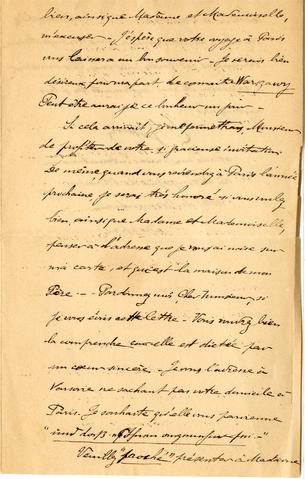 bien, ainsi que Madame et Mademoiselle,
m'excuser — J'espère que votre voyage à Paris
vous laissera un bon souvenir — Je serais bien
désireux pour ma part de connaître
Peut être aurai je ce bonheur un jour —
Si cela arrivait, je me permettrais Monsieur
de profiter de votre si gracieuse invitation.
De même quand vous reviendrez à Paris l'année
prochaine je serai très honoré si vous voulez
bien, ainsi que Madame et Mademoiselle,
penser à l'adresse que je vous ai mise sur
ma carte, et qui est la maison de mon
Père — Pardonnez moi Cher Monsieur, si
je vous écris cette lettre — Vous voudrez bien
la comprendre car elle est dictée par
un cœur sincère. Je vous l'adresse à
Varsovie ne sachant pas votre domicile à
Paris. Je souhaite qu'elle vous parvienne
"und daß
Veuillez présenter à Madame